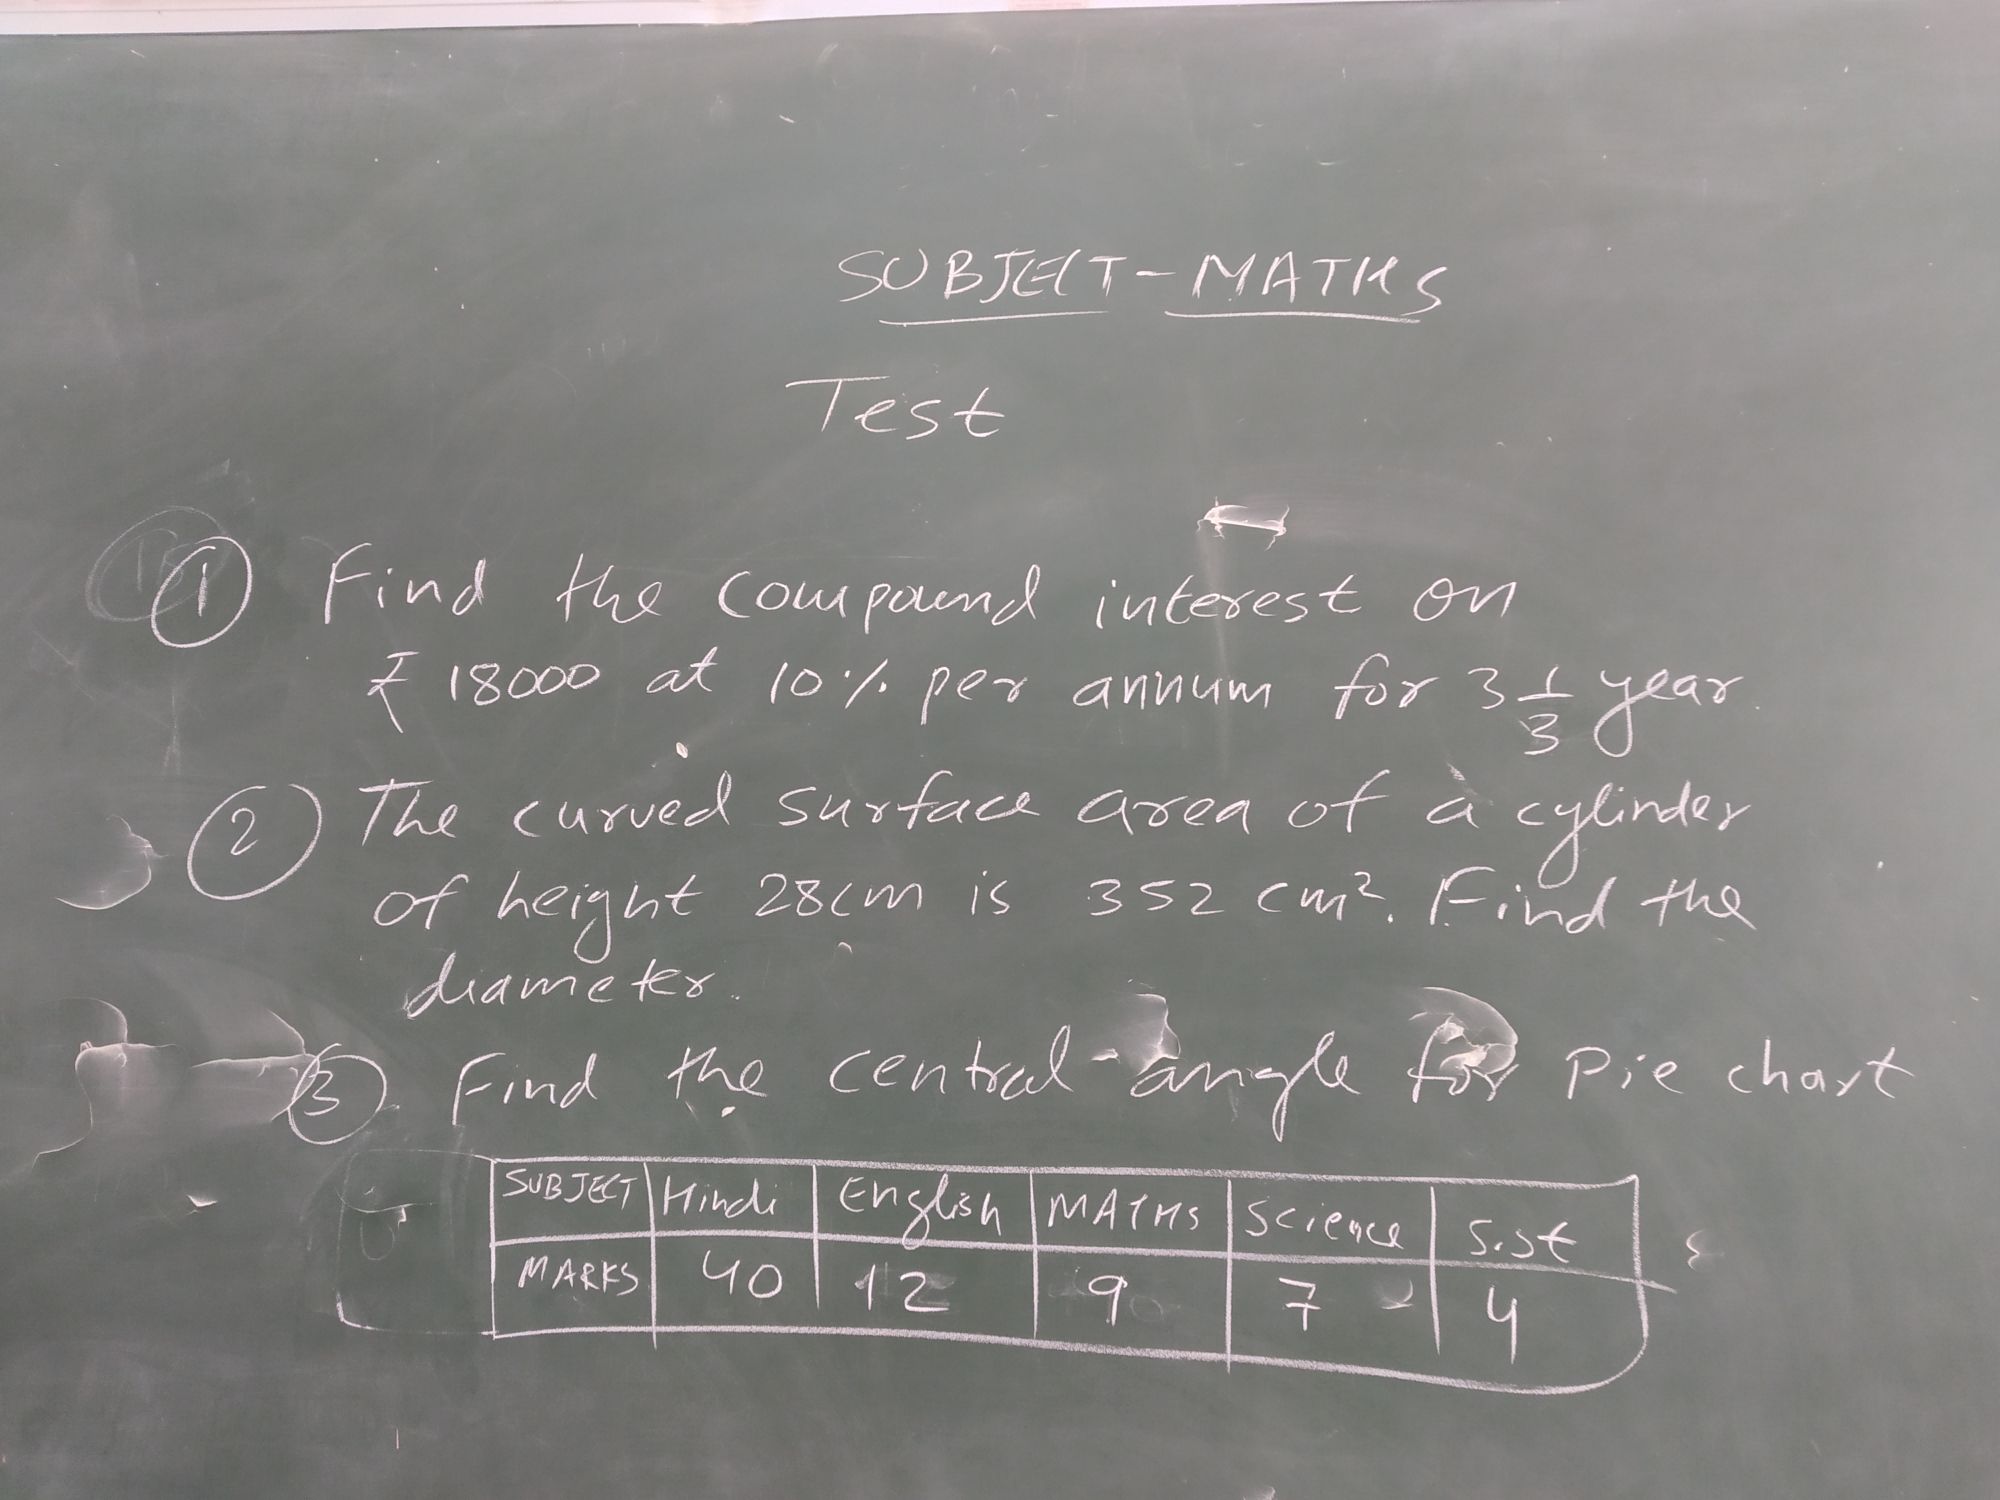 SUBJECT-MATHS
Test
① Find the compound interest on
₹ 18000 at 10% per annum for 3 1/3 year.
② The curved surface area of a cylinder
of height 28cm is 352 cm². Find the
diameter.
③ Find the central angle for Pie chart
SUBJECT Hindi English MATHS Science S.st
MARKS 40 12 9 7 4